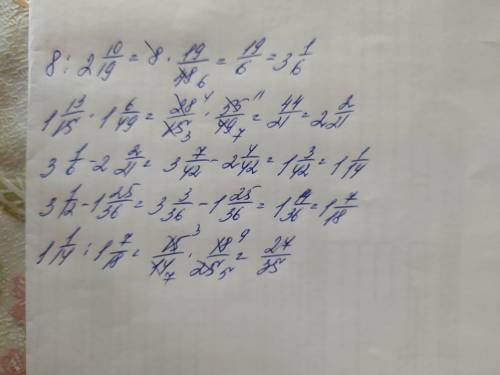 8 : 2 10/19 = 8 · 19/48 6 = 19/6 = 3 1/6
1 13/15 · 1 6/49 = 28 4/15 3 · 55 11/49 7 = 44/21 = 2 2/21
3 1/6 - 2 2/21 = 3 7/42 - 2 4/42 = 1 3/42 = 1 1/14
3 1/12 - 1 25/36 = 3 3/36 - 1 25/36 = 1 14/36 = 1 7/18
1 1/14 : 1 7/18 = 15 3/14 7 · 18 9/25 5 = 27/35